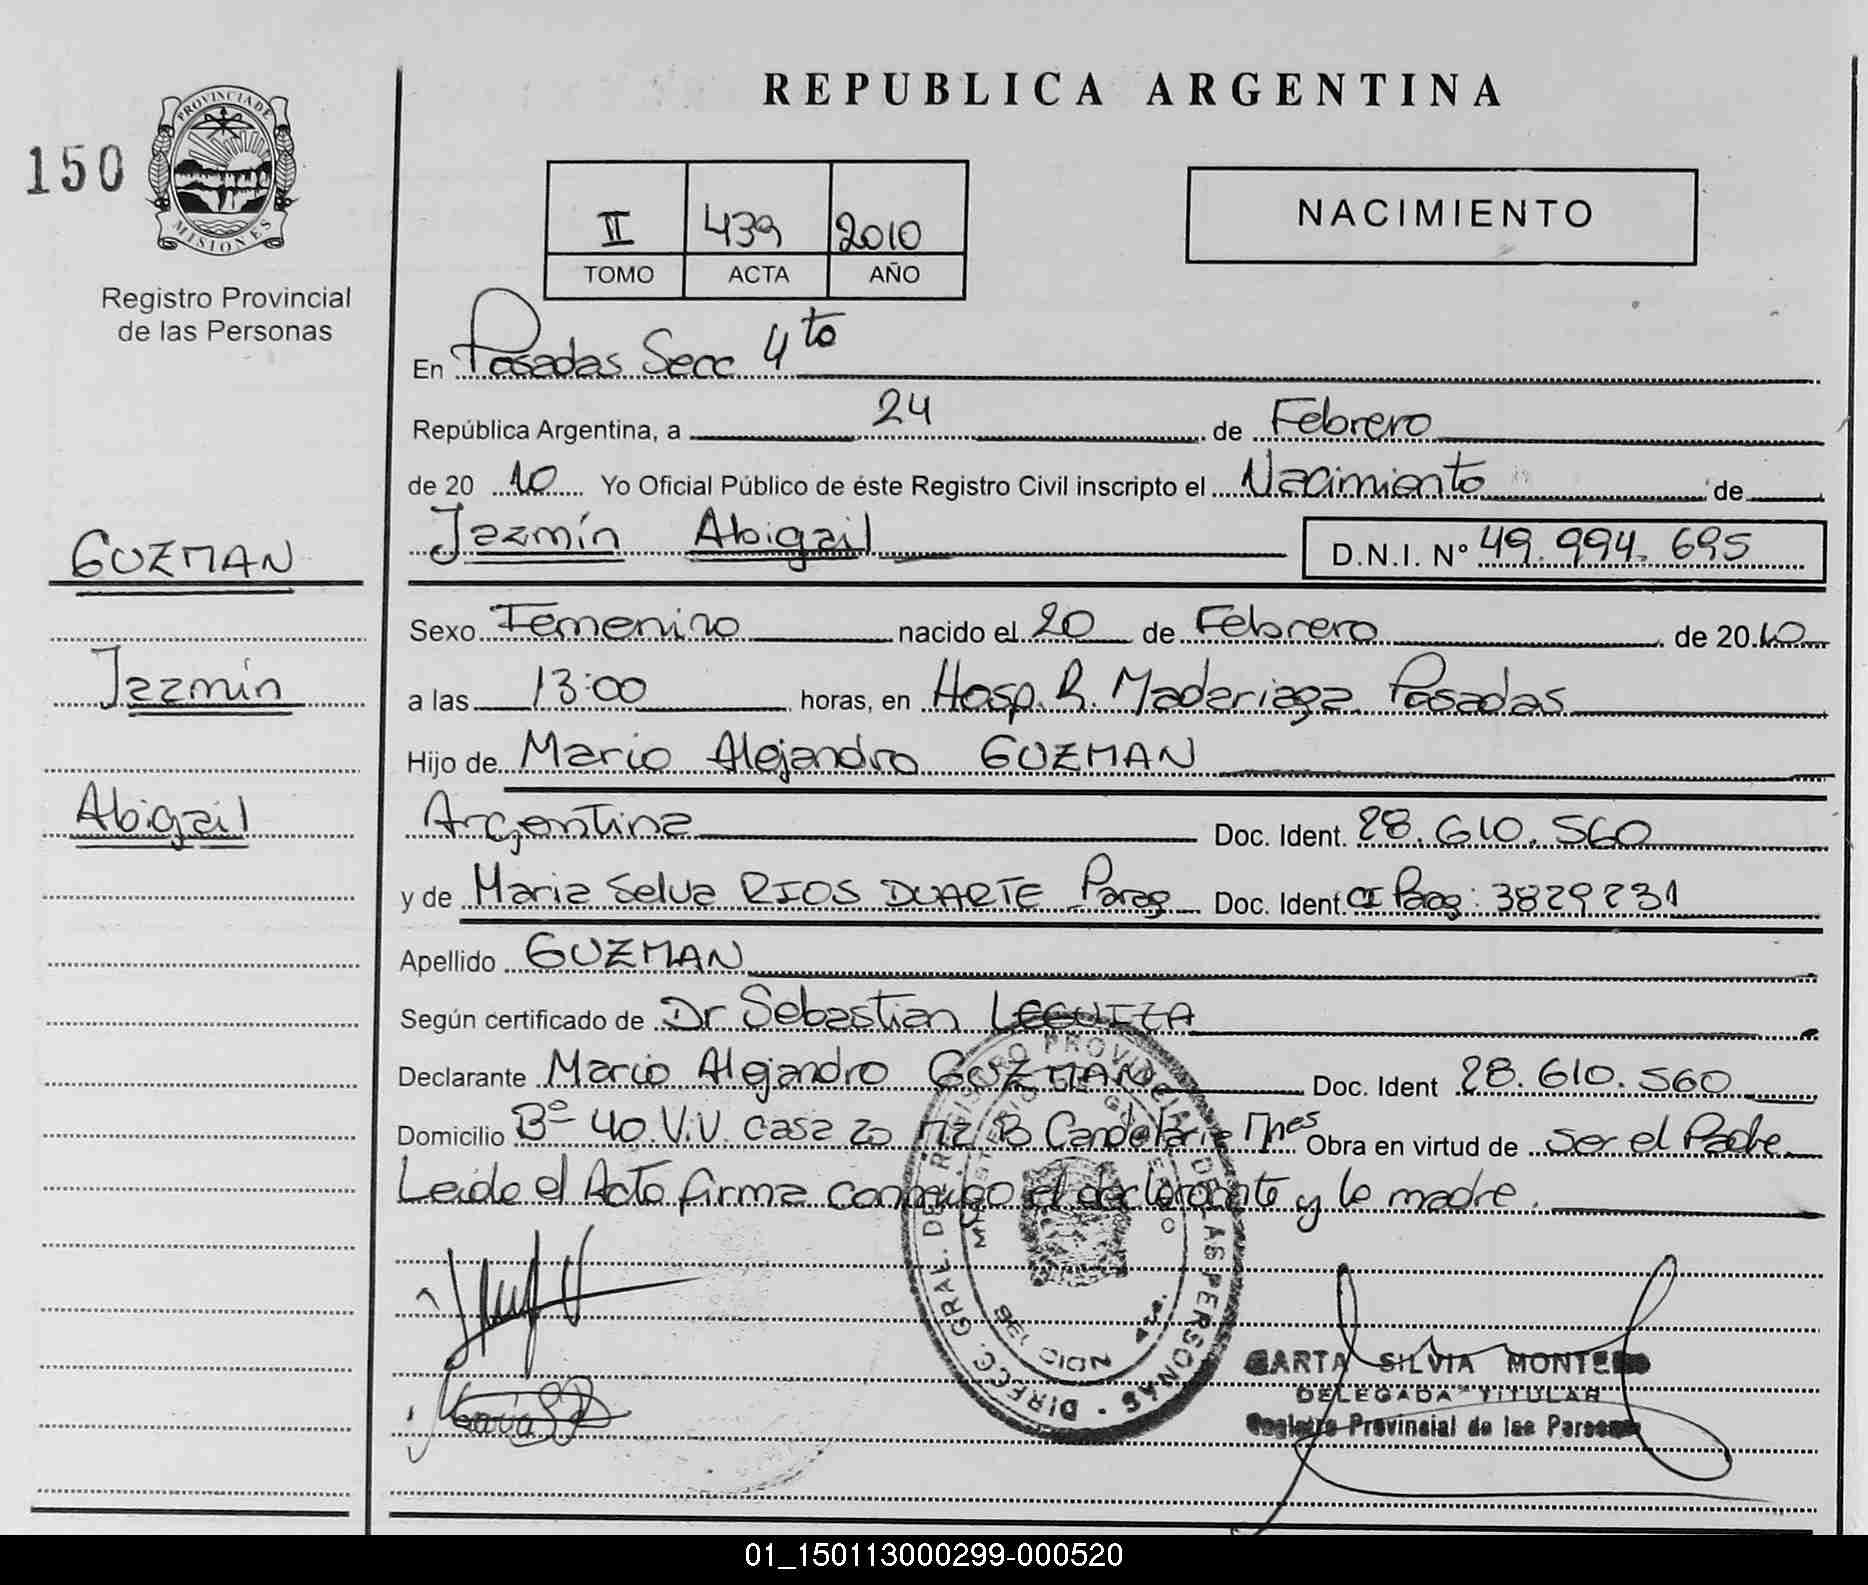 REPUBLICA ARGENTINA
150
PROVINCIA DE
MISIONES
Registro Provincial
de las Personas
II 439 2010
TOMO ACTA AÑO
NACIMIENTO
En Posadas Secc 4to
República Argentina, a 24 de Febrero
de 20 10 Yo Oficial Público de éste Registro Civil inscripto el Nacimiento de
Jazmín Abigail D.N.I. N° 49.994.695
GUZMAN
Jazmín
Abigail
Sexo Femenino nacido el 20 de Febrero de 20 10
a las 13:00 horas, en Hosp. R. Madariaga Posadas
Hijo de Mario Alejandro GUZMAN
Argentina Doc. Ident. 28.610.560
y de Maria Selva RIOS DUARTE Parag Doc. Ident. CI Parag: 3829231
Apellido GUZMAN
Según certificado de Dr Sebastian LEGUIZA
Declarante Mario Alejandro GUZMAN Doc. Ident 28.610.560
Domicilio B° 40.V.V. casa 20 Mz B Candelaria Mnes Obra en virtud de ser el Padre
Leído el Acta firma conmigo el declarante y la madre.
DIRECC. GRAL. DEL REGISTRO PROVINCIAL DE LAS PERSONAS
MINISTERIO DE GOBIERNO
SILVIA MONTERO
DELEGADA TITULAR
Registro Provincial de las Personas
01_150113000299-000520